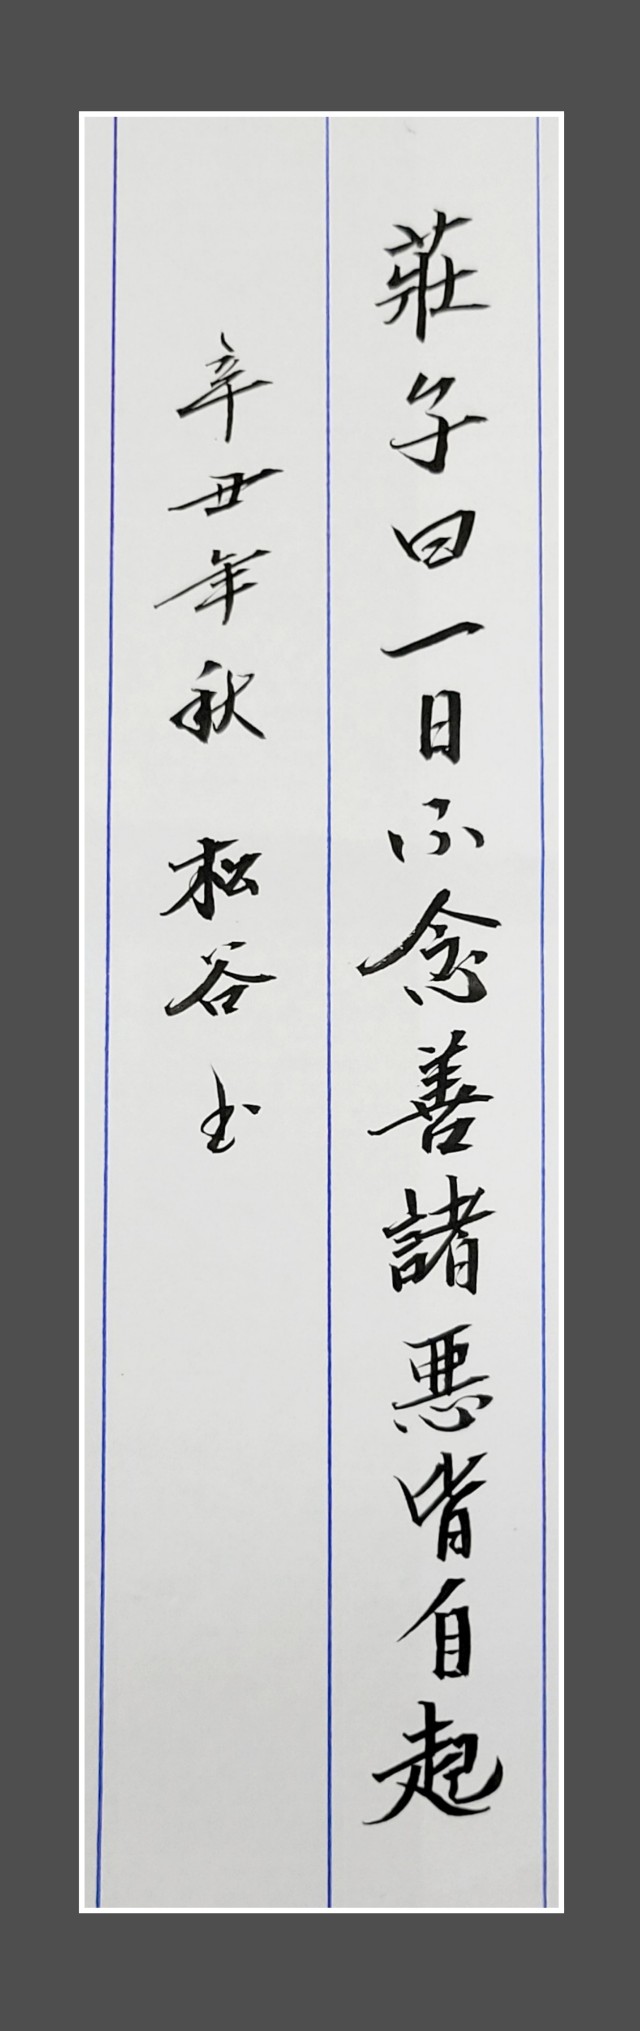 莊子曰一日不念善諸惡皆自起
辛丑年秋 松谷书